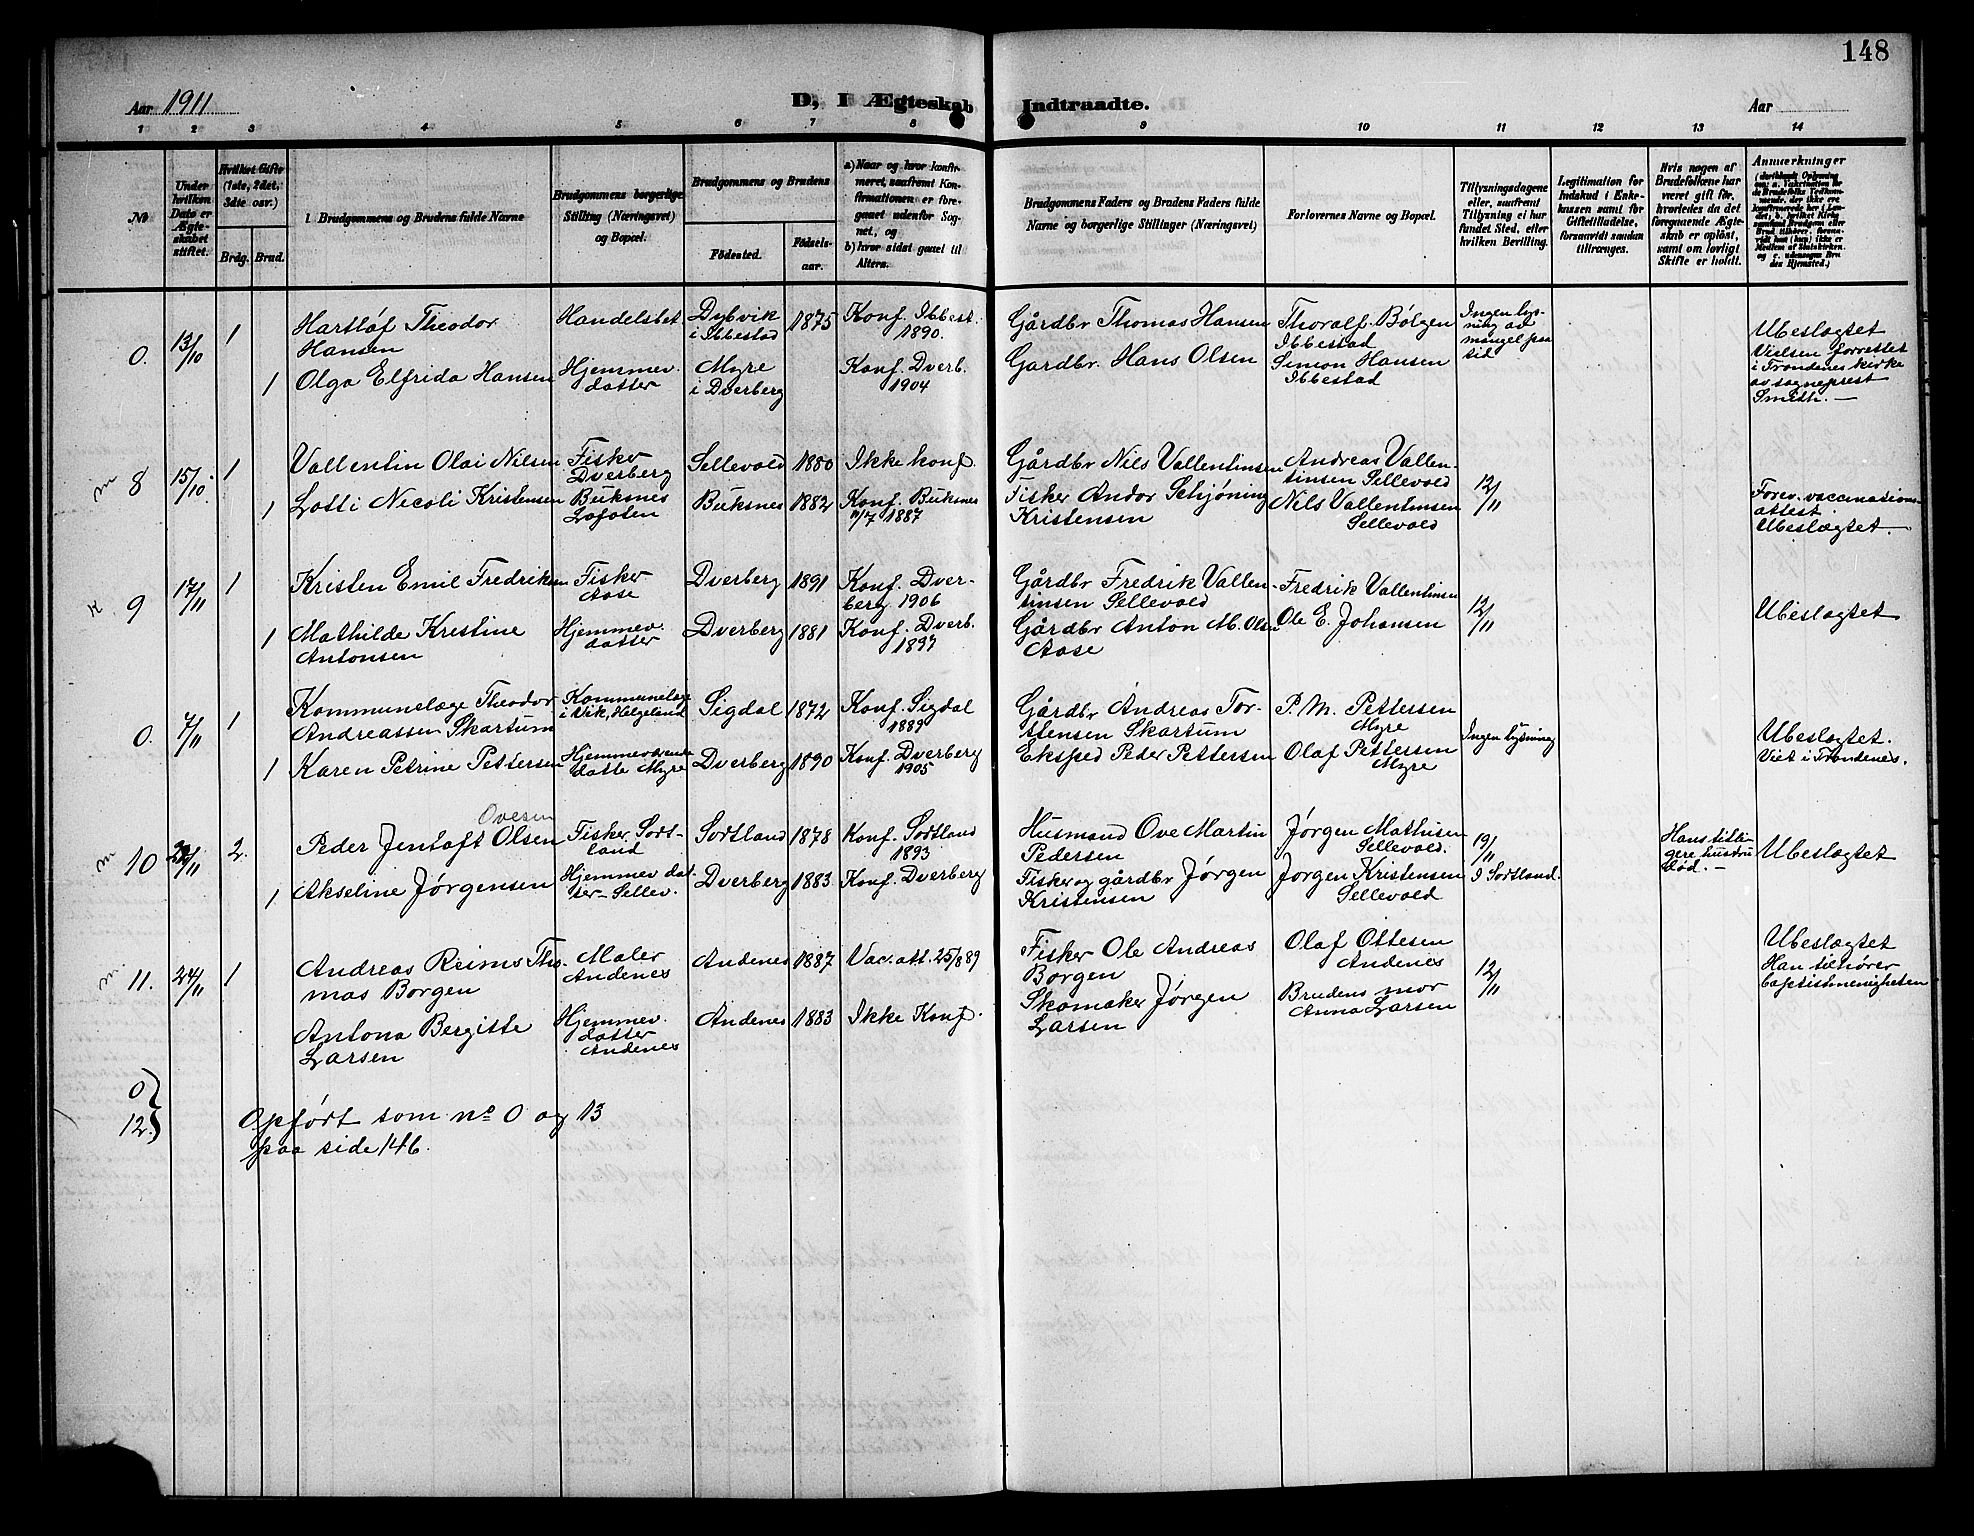 148
Aar 1911
D, I Ægteskab Indtraadte.
Aar
1 2 3 4 5 6 7 8 9 10 11 12 13 14
№
Under hvilken Dato er Ægteskabet stiftet.
Hvilket Gifte (1ste, 2det, 3die osv.)
Brdg. Brud.
Brudgommens og Brudens fulde Navne
Brudgommens borgerlige Stilling (Næringsvei) og Bopæl.
Brudgommens og Brudens
Fødested.
Fødselsaar.
a) Naar og hvor konfirmeret, saafremt Konfirmationen er foregaaet udenfor Sognet, og
b) hvor sidst gaaet til Alters.
Brudgommens Faders og Brudens Faders fulde Navne og borgerlige Stillinger (Næringsvei)
Forlovernes Navne og Bopæl.
Tillysningsdagene eller, saafremt Tillysning ei har fundet Sted, efter hvilken Bevilling.
Legitimation for Indskud i Enkekassen samt for Giftetilladelse, forsaavidt saadan tiltrænges.
Hvis nogen af Brudefolkene har været gift før, hvorledes da det foregaaende Ægteskab er opløst, samt om lovligt Skifte er holdt.
Anmerkninger
0. 13/10 1 Hartlof Theodor Hansen Handelsbet. Dybvik i Ibbestad 1875 Konf. Ibbest. 1890. Gårdbr Thomas Hansen Thoralf Børgen Ibbestad Ingen lysning av mangel paa tid Ubeslægtet Vielsen forrettet i Trondenes kirke av sogneprest Smith. —
1 Olga Elfrida Hansen Hjemmev. datter Myre i Dverberg Konf. Dverb. 1904 Gardbr. Hans Olsen Simon Hansen Ibbestad
m 8 15/10. 1 Vallentin Olai Nilsen Fisker Dverberg Sellevold 1880 Ikke konf. Gårdbr Nils Vallentinsen Andreas Vallentinsen Sellevold 12/11
1 Lotti Nicoli Kristensen Buksnes Lofoten Buksnes 1882 Konf. Buksnes 11/7 1887 Fisker Andor Schjøning Kristensen Nils Vallentinsen Sellevold Forev. vaccinationsattest. Ubeslægtet.
K 9 17/11 1 Kristen Emil Fredriksen Fisker Aase Dverberg 1891 Konf. Dverberg 1906 Gårdbr Fredrik Vallentinsen Sellevold Fredrik Vallentinsen 12/11 Ubeslægtet
1 Mathilde Kristine Antonsen Hjemmev. datter Dverberg 1881 Konf. Dverb. 1897 Gårdbr Anton M. Olsen Aase Ole E. Johansen
0. 7/11 1 Kommunelæge Theodor Andreassen Skartum Kommunelæge i Vik, Helgeland Sigdal 1872 Konf. Sigdal 1889 Gårdbr Andreas Torstensen Skartum P. M. Pettersen Myre Ingen lysning Ubeslægtet. Viet i Trondenes.
1 Karen Petrine Pettersen Hjemmeværende datte Myre Dverberg 1890 Konf. Dverberg 1905 Eksped Peder Pettersen Olaf Pettersen Myre
Ovesen
m 10 22/11 2. Peder Jentoft Olsen Fisker Sortland Sortland 1878 Konf. Sortland 1893 Husmand Ove Martin Pedersen Jørgen Mathisen Sellevold. 19/11 I Sortland. Hans tidligere hustru død. — Ubeslægtet
1 Akseline Jørgensen Hjemmev datter — Sellev. Dverberg 1883 Konf. Dverberg Fisker og gårdbr Jørgen Kristensen Jørgen Kristensen Sellevold
m. 11. 24/11 1 Andreas Reims Thomas Borgen Maler Andenes Andenes 1887 Vac. att. 25/8 89 Fisker Ole Andreas Borgen Olaf Ottesen Andenes 12/11 Ubeslægtet Han tilhører baptistmenigheten
Antona Bergitte Larsen Hjemmev. datter Andenes Andenes 1883 Ikke Konf. Skomaker Jørgen Larsen Brudens mor Anna Larsen
0
12. Opført som no 0 og 13
paa side 146.